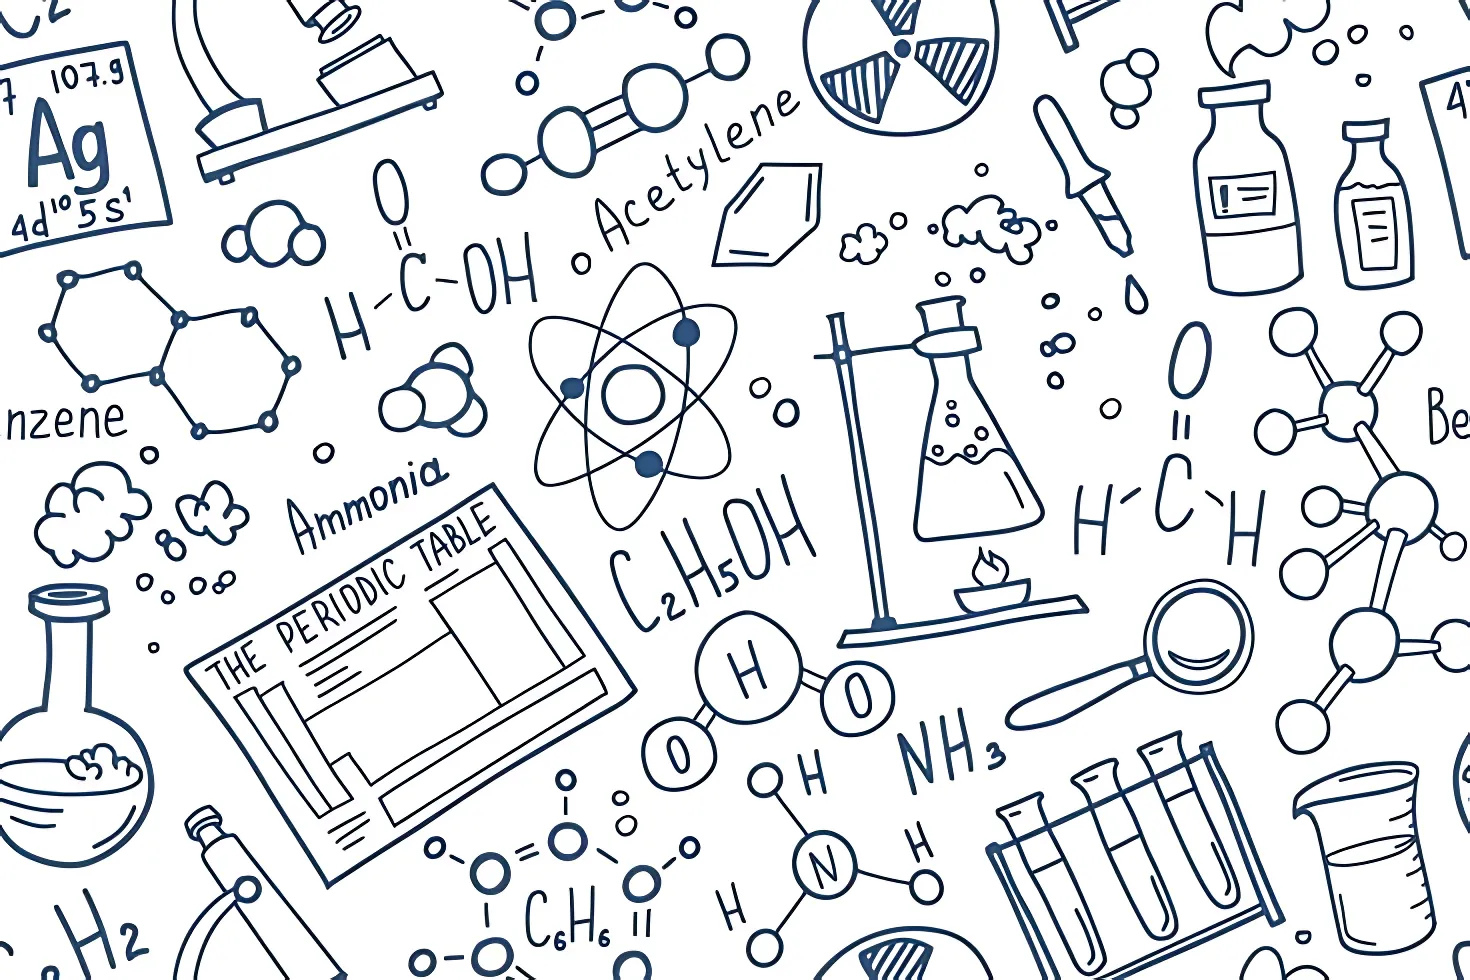 107.9
Ag
4d¹⁰5s¹
Acetylene
O
H C OH
nzene
Ammonia
THE PERIODIC TABLE
C₂H₅OH
O
H C H
Be
H
O O
NH₃
H
N H
H
C₆H₆
H₂